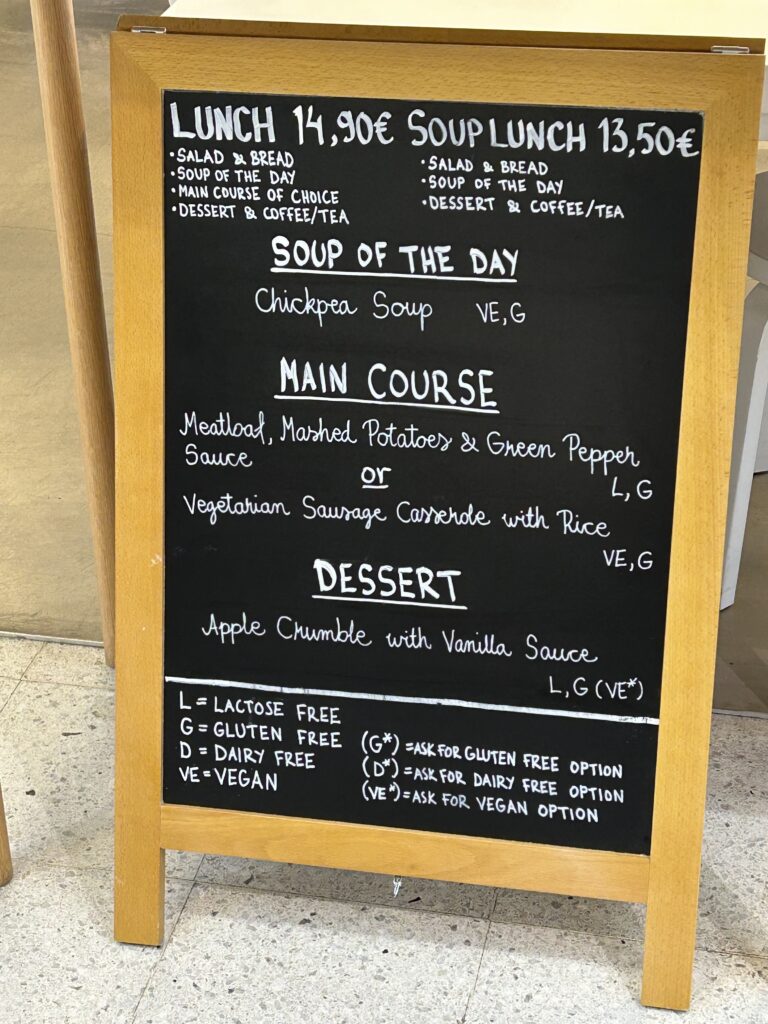 LUNCH 14,90€ SOUP LUNCH 13,50€
•SALAD & BREAD
•SOUP OF THE DAY
•MAIN COURSE OF CHOICE
•DESSERT & COFFEE/TEA
•SALAD & BREAD
•SOUP OF THE DAY
•DESSERT & COFFEE/TEA
SOUP OF THE DAY
Chickpea Soup VE, G
MAIN COURSE
Meatloaf, Mashed Potatoes & Green Pepper
Sauce
L, G
or
Vegetarian Sausage Casserole with Rice
VE, G
DESSERT
Apple Crumble with Vanilla Sauce
L, G (VE*)
L = LACTOSE FREE
G = GLUTEN FREE
D = DAIRY FREE
VE = VEGAN
(G*) = ASK FOR GLUTEN FREE OPTION
(D*) = ASK FOR DAIRY FREE OPTION
(VE*) = ASK FOR VEGAN OPTION